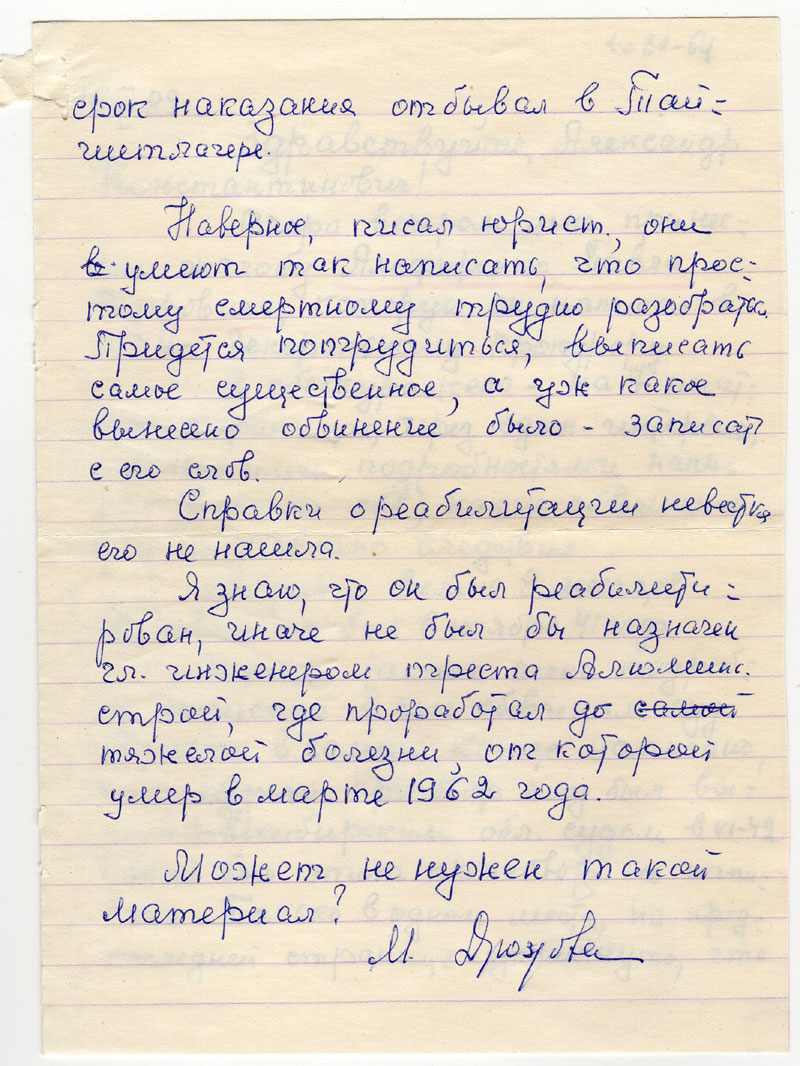 срок наказания отбывал в Тай=
шитлагере.
Наверное, писал юрист, они
в умеют так написать, что прос-
тому смертному трудно разобраться.
Придётся потрудиться, выписать
самое существенное, а уж какое
вынесено обвинение было - записать
с его слов.
Справки о реабилитации невестка
его не нашла.
Я знаю, что он был реабилити=
рован, иначе не был бы назначен
гл. инженером треста Алюминс.
строй, где проработал до самой
тяжелой болезни, от которой
умер в марте 1962 года.
Может не нужен такой
материал?
М. Дрюзова